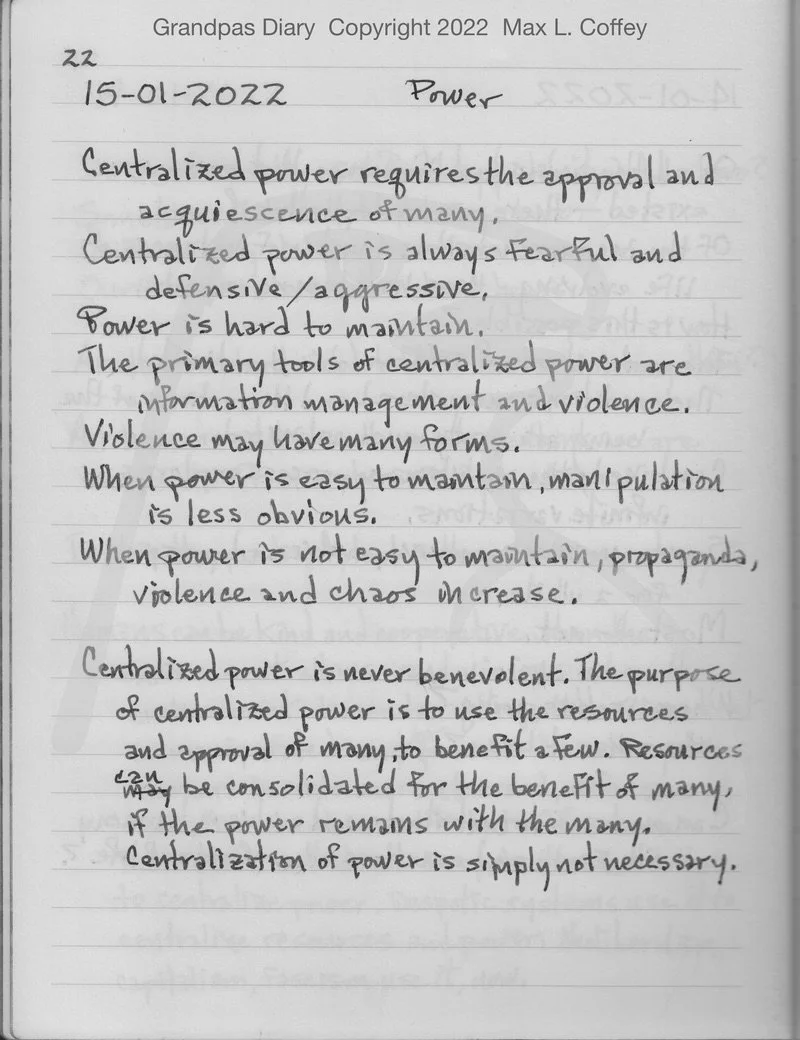 Grandpas Diary Copyright 2022 Max L. Coffey
22
15-01-2022 Power
Centralized power requires the approval and
acquiescence of many.
Centralized power is always fearful and
defensive/aggressive.
Power is hard to maintain.
The primary tools of centralized power are
information management and violence.
Violence may have many forms.
When power is easy to maintain, manipulation
is less obvious.
When power is not easy to maintain, propaganda,
violence and chaos increase.
Centralized power is never benevolent. The purpose
of centralized power is to use the resources
and approval of many, to benefit a few. Resources
can
may be consolidated for the benefit of many,
if the power remains with the many.
Centralization of power is simply not necessary.